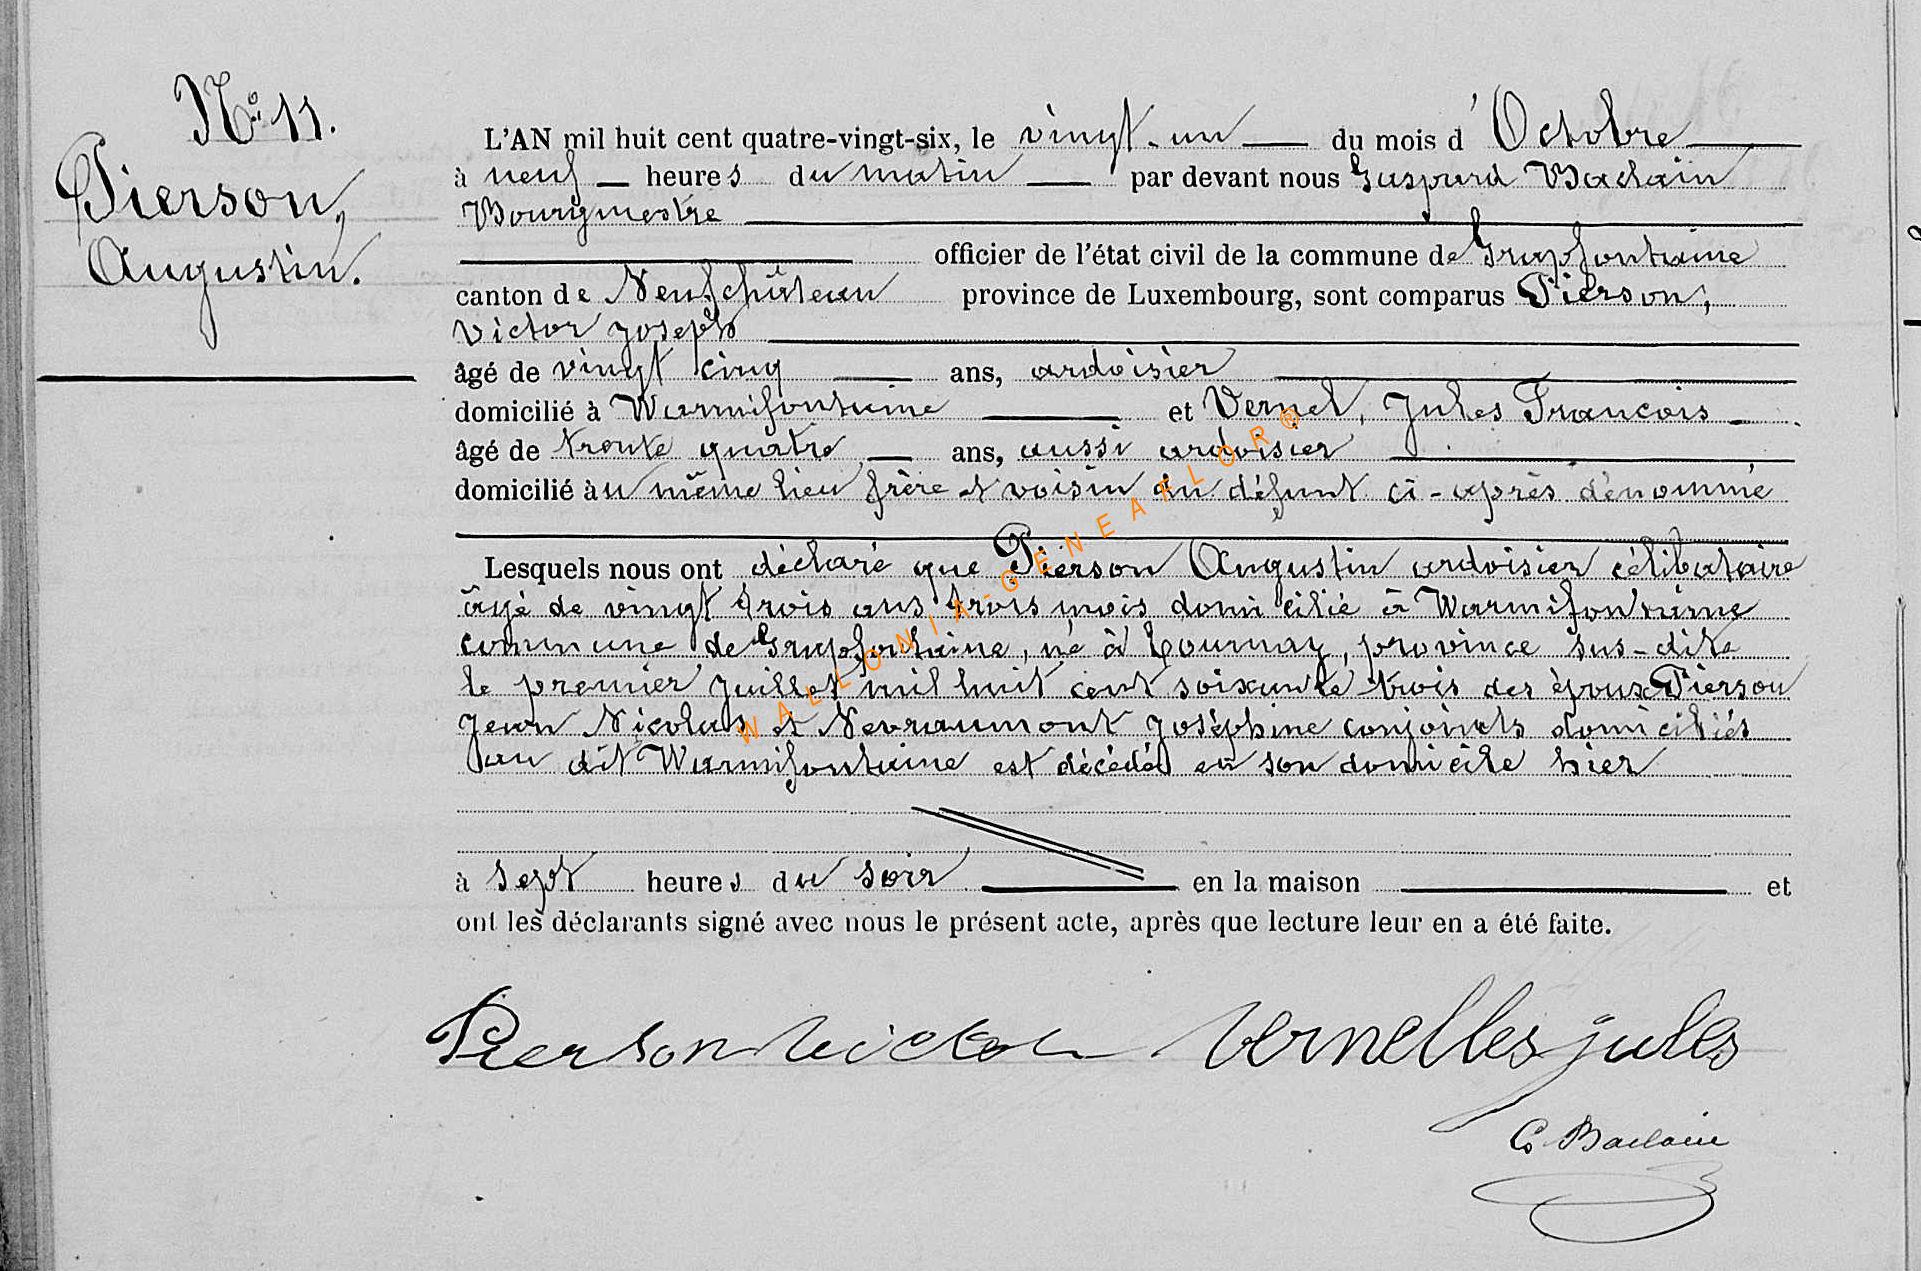 N° 11.
Pierson,
Augustin.
L'AN mil huit cent quatre-vingt-six, le vingt-un du mois d'Octobre
à neuf heures du matin par devant nous Gaspard Baclain
Bourgmestre
officier de l'état civil de la commune de Grapfontaine
canton de Neufchâteau province de Luxembourg, sont comparus Pierson,
Victor Joseph
âgé de vingt cinq ans, ardoisier
domicilié à Warmifontaine et Vernel, Jules Francois
âgé de trente quatre ans, aussi ardoisier
domicilié au même lieu frère et voisin du défunt ci-après dénommé
Lesquels nous ont déclaré que Pierson Augustin ardoisier célibataire
âgé de vingt trois ans trois mois domicilié à Warmifontaine
commune de Grapfontaine, né à Tournay, province sus-dite
le premier juillet mil huit cent soixante trois des époux Pierson
Jean Nicolas et Nevraumont Joséphine conjoints domiciliés
au dit Warmifontaine est décédé en son domicile hier
à sept heures du soir en la maison et
ont les déclarants signé avec nous le présent acte, après que lecture leur en a été faite.
Pierson Victor Vernelles jules
G. Baclain
WALLONIA-GENEALOR®